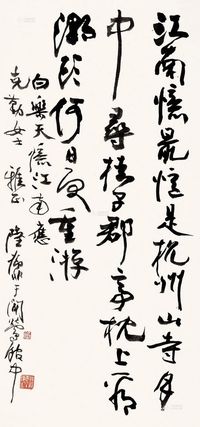 江南憶最憶是杭州山寺月
中尋桂子郡亭枕上看
潮頭何日更重游
白樂天憶江南應
克勤女士 雅正 陸